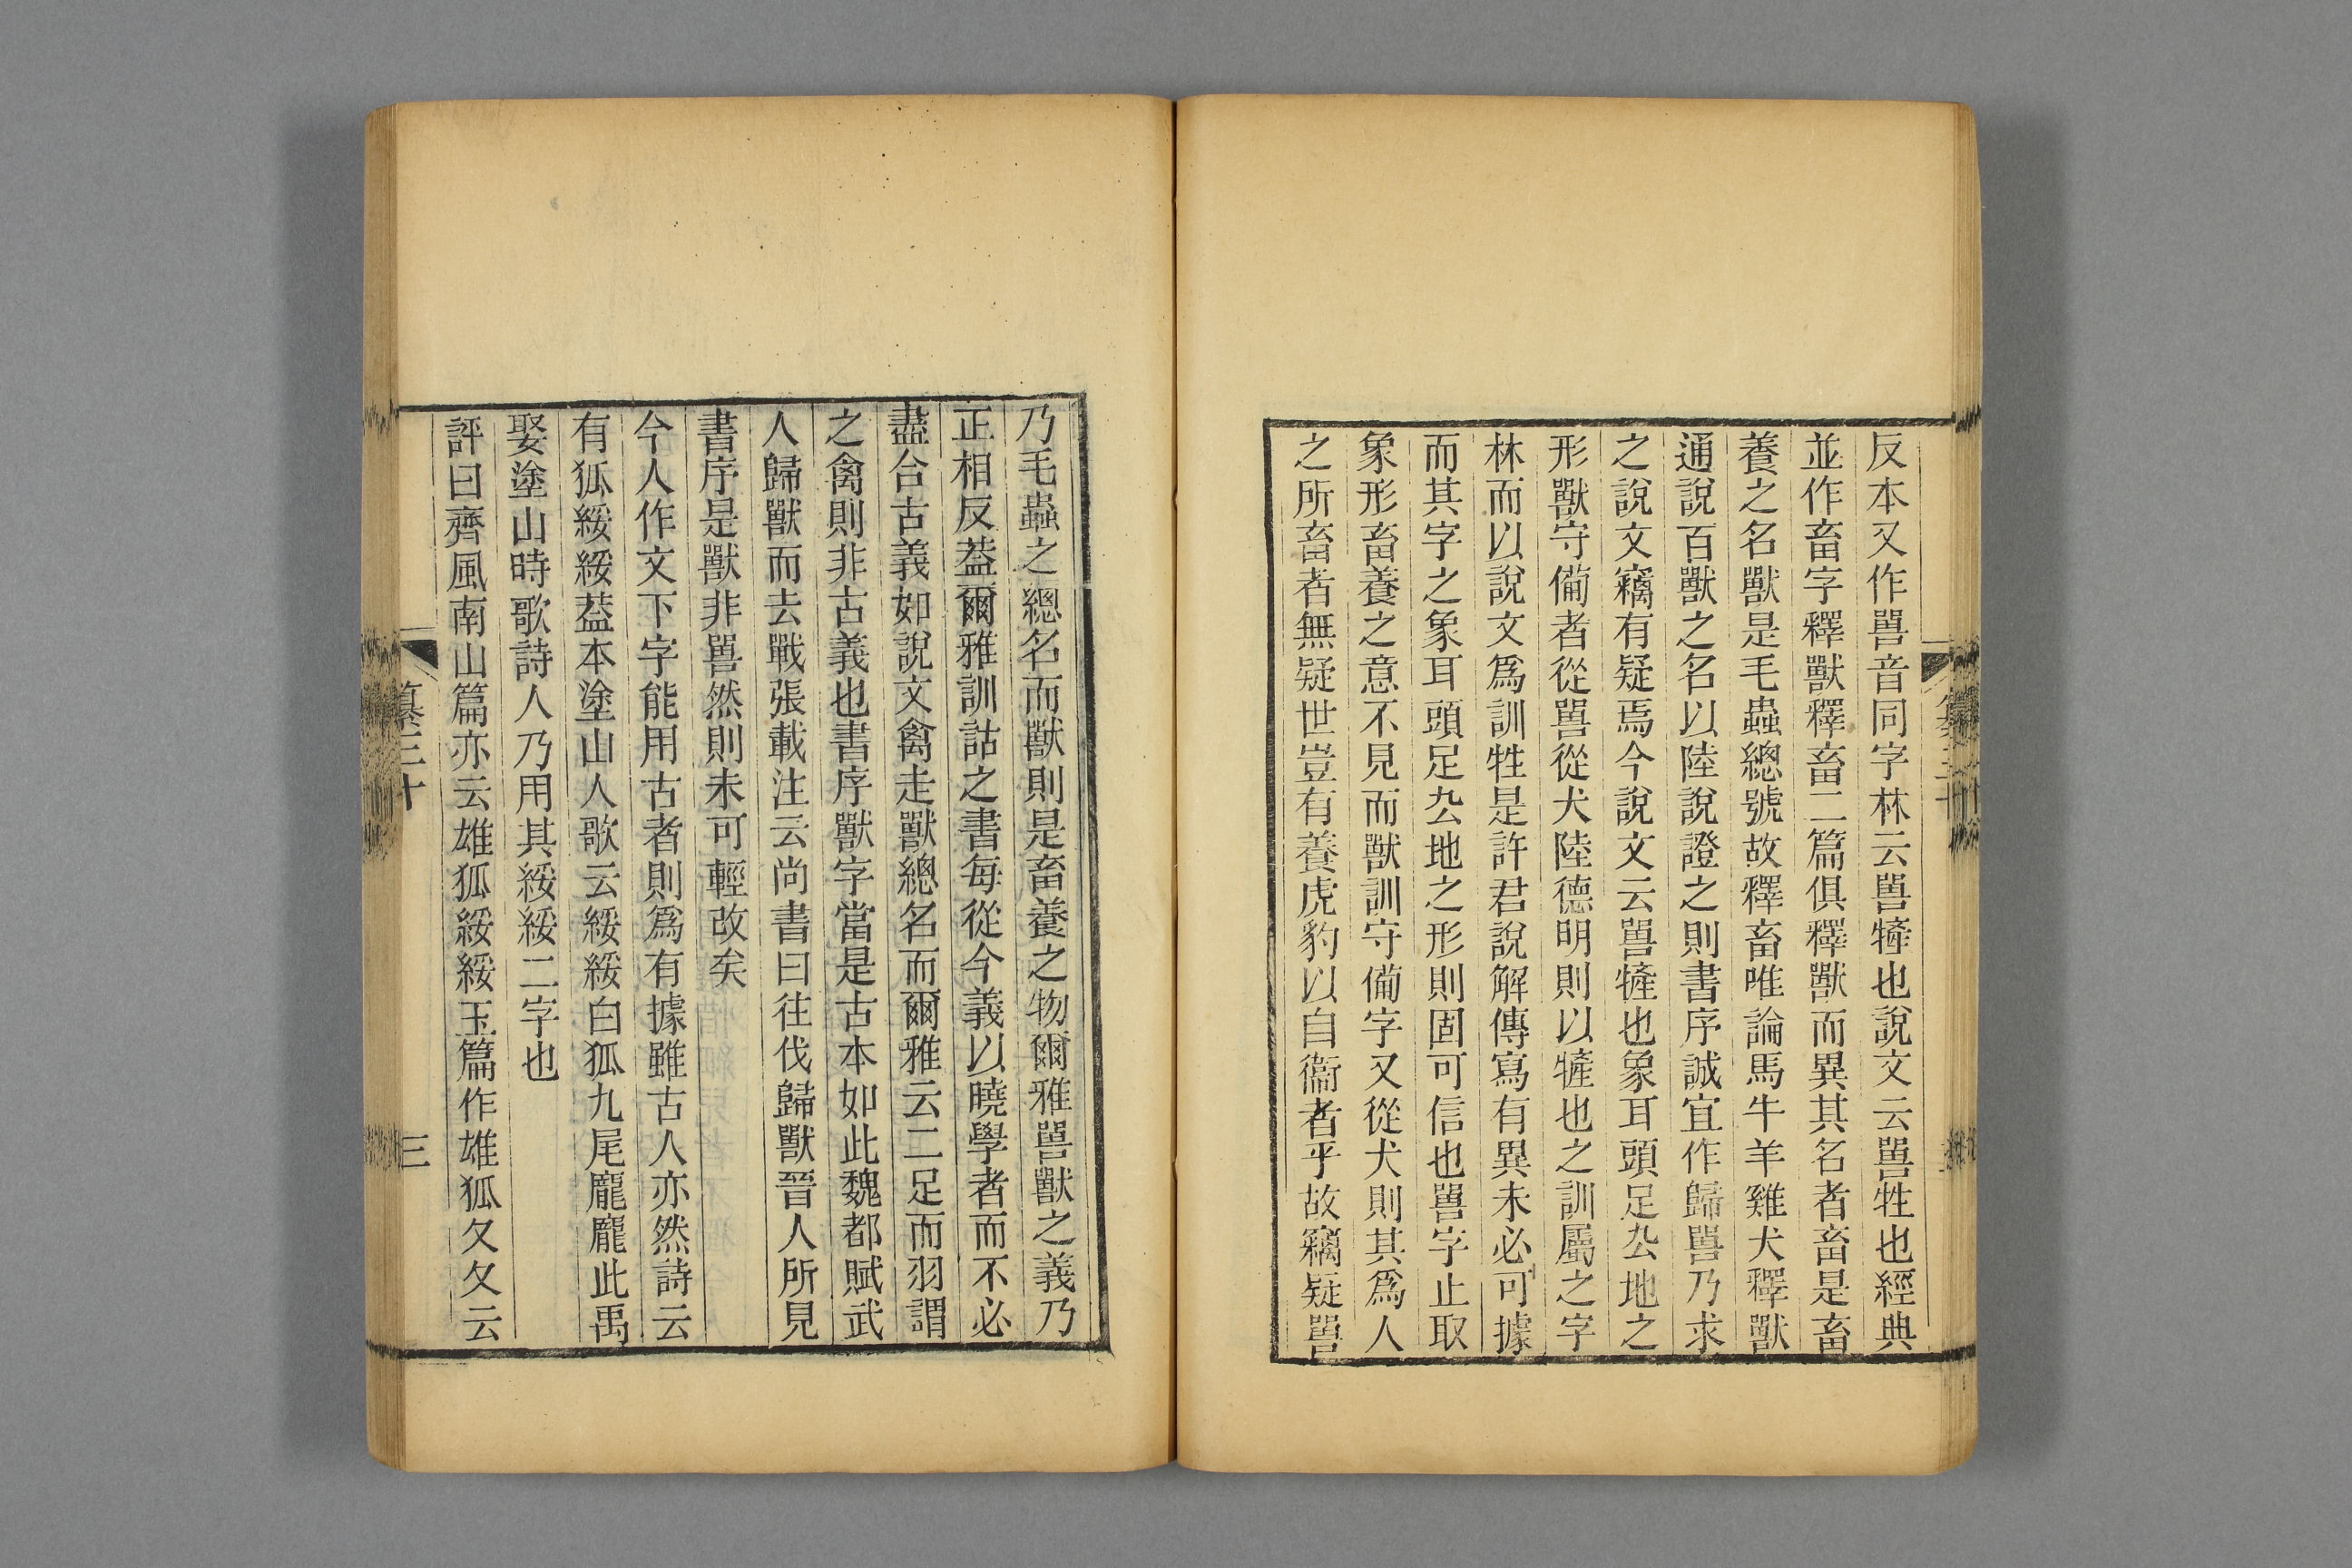 反本又作嘼音同字林云嘼㹌也說文云嘼牲也經典
並作畜字釋獸釋畜二篇俱釋獸而異其名者畜是畜
養之名獸是毛蟲總號故釋畜唯論馬牛羊雞犬釋獸
通說百獸之名以陸說證之則書序誠宜作歸嘼乃求
之說文竊有疑焉今說文云嘼㹌也象耳頭足厹地之
形獸守備者從嘼從犬陸德明則以㹌也之訓屬之字
林而以說文爲訓牲是許君說解傳寫有異未必可據
而其字之象耳頭足厹地之形則固可信也嘼字止取
象形畜養之意不見而獸訓守備字又從犬則其爲人
之所畜者無疑世豈有養虎豹以自衞者乎故竊疑嘼
乃毛蟲之總名而獸則是畜養之物爾雅嘼獸之義乃
正相反葢爾雅訓詁之書每從今義以曉學者而不必
盡合古義如說文禽走獸總名而爾雅云二足而羽謂
之禽則非古義也書序獸字當是古本如此魏都賦武
人歸獸而去戰張載注云尚書曰往伐歸獸晉人所見
書序是獸非嘼然則未可輕改矣
今人作文下字能用古者則爲有據雖古人亦然詩云
有狐綏綏葢本塗山人歌云綏綏白狐九尾龐龐此禹
娶塗山時歌詩人乃用其綏綏二字也
評曰齊風南山篇亦云雄狐綏綏玉篇作雄狐夊夊云
纂三十
三